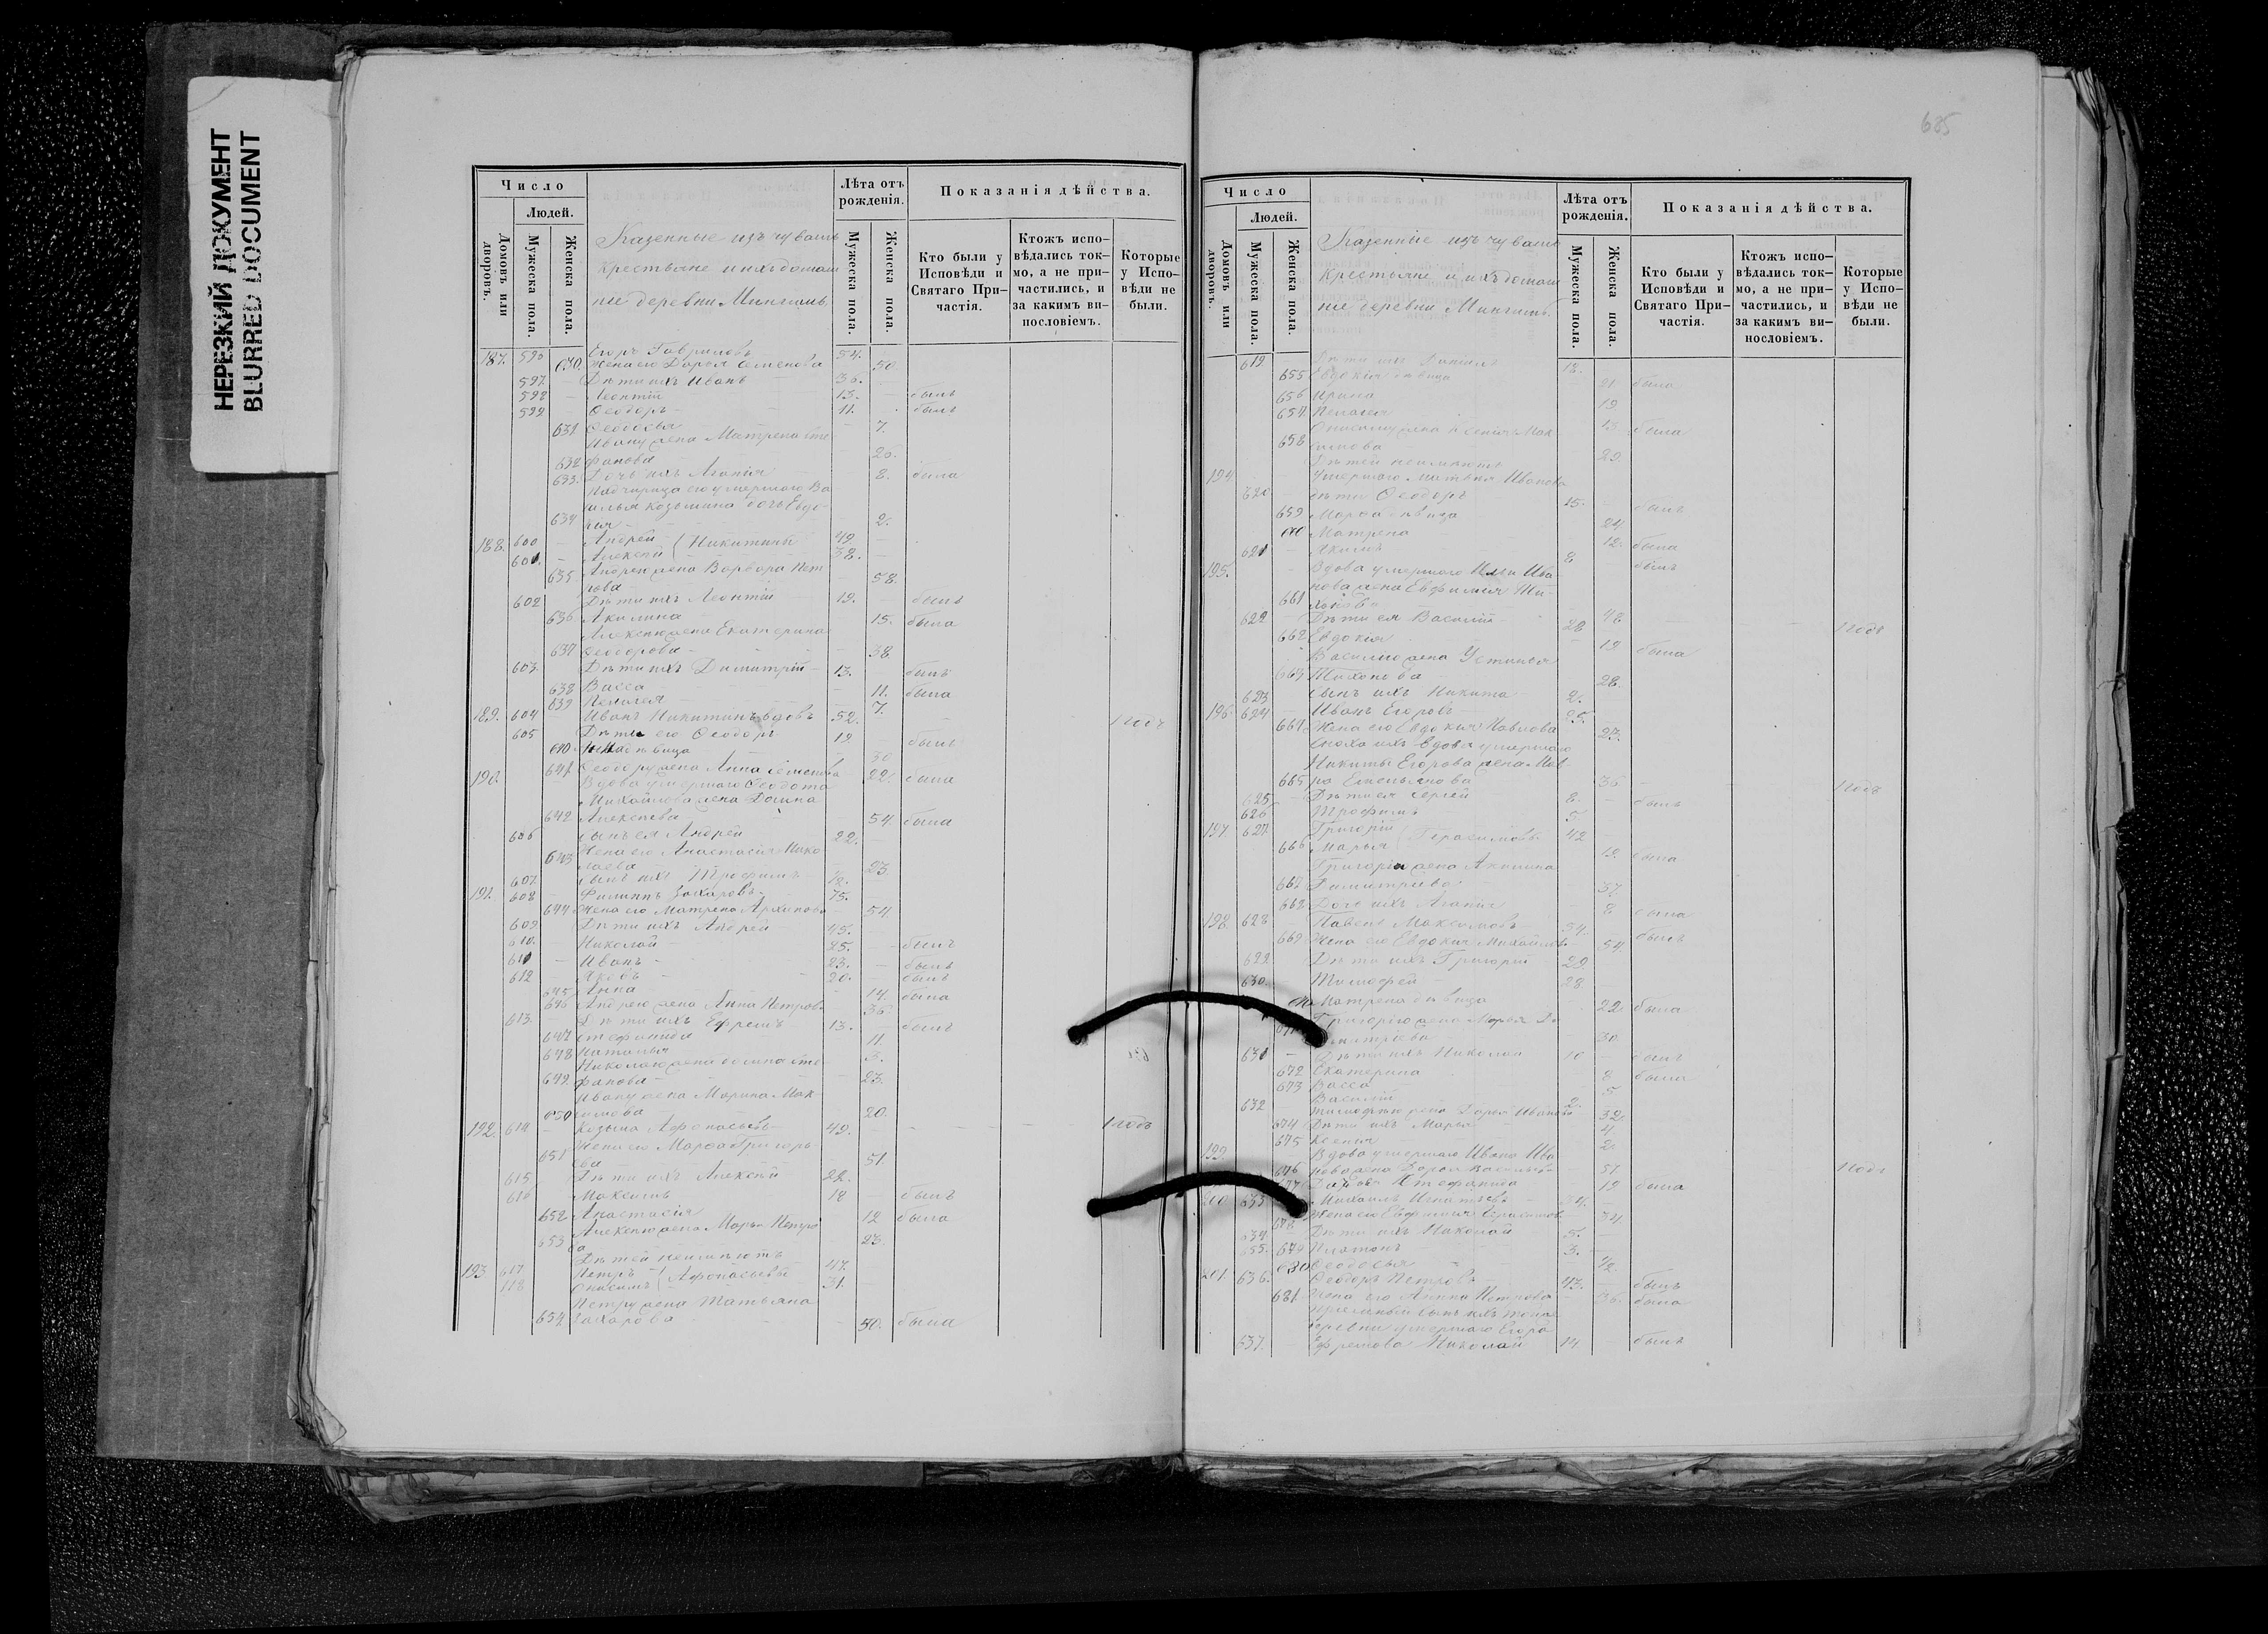 НЕРЕЗКИЙ ДОКУМЕНТ
BLURRED DOCUMENT
Число
Людей.
Домовъ или дворовъ.
Мужеска пола.
Женска пола.
Казенные изъ чувашъ
крестьяне и ихъ домаш
ніе деревни
Лѣта отъ рожденія.
Мужеска пола.
Женска пола.
Показанія дѣйства.
Кто были у Исповѣди и Святаго При-частія.
Ктожъ испо-вѣдались ток-мо, а не при-частились, и за какимъ ви-пословіемъ.
Которые у Испо-вѣди не были.
187. 596 Егоръ Гавриловъ 54.
630. Жена его Дарья Семенова 50
597. Дѣти ихъ Иванъ 36.
598 Леонтій 13. былъ
599 Ѳеодоръ 11. былъ
631 Ѳеодосья 7.
Ивану жена Матрена Сте
632 фанова 26.
633. Дочь ихъ Агапія 8. была
Падчерица его умершаго Ва
силья Козьмина дочь Евдо-
634 кія 2.
188. 600 Андрей Никитины 49.
601. Алексѣй 38.
Андрею жена Варвара Пет
635 рова 58.
602 Дѣти ихъ Леонтій 19. былъ
636 Акилина 15. была
Алексѣю жена Екатерина
637 Ѳеодорова 38.
603. Дѣти ихъ Димитрій 13. былъ
638 Васса 11. была
639 Пелагея 7.
189. 604 Иванъ Никитинъ вдовъ 52. 1 годъ
605 Дѣти его Ѳеодоръ 19. былъ
640 дѣвица 30
641 Ѳеодору жена Анна Семенова 22. была
190. Вдова умершаго Ѳеодота
Михайлова жена Домна
642 Алексѣева 54 была
606 Сынъ ея Андрей 22.
Жена его Анастасія Нико
643 лаева 23.
607. Сынъ ихъ Трофимъ 1/2.
191. 608 Филиппъ Захаровъ 75.
644 Жена его Матрена Архипова 54
609. Дѣти ихъ Андрей 45.
610. Николай 25. былъ
611 Иванъ 23. былъ
612 Яковъ 20. былъ
645 Анна 14. была
646 Андрею жена Анна Петрова 36.
613. Дѣти ихъ Ефремъ 13. былъ
647 Стефанида 11.
648 Наталья 3.
Николаю жена Домна Сте
649. фанова 23.
Ивану жена Марина Мак
650 симова 20.
192. 614 Козьма Афонасьевъ 49. 1 годъ
Жена его Марѳа Григорь
651 ева 51.
615. Дѣти ихъ Алексѣй 22.
616 Максимъ 18 былъ
652 Анастасія 12 была
Алексѣю жена Марья Петро
653 ва 23.
Дѣтей неимѣютъ
193 617 Петръ Афонасьевы 47.
618 Онисимъ 31.
Петру жена Татьяна
654. Захарова 50. была
685
Число
Людей.
Домовъ или дворовъ.
Мужеска пола.
Женска пола.
Казенніе изъ чувашъ
крестьяне и ихъ домаш
ніе деревни
Лѣта отъ рожденія.
Мужеска пола.
Женска пола.
Показанія дѣйства.
Кто были у Исповѣди и Святаго При-частія.
Ктожъ испо-вѣдались ток-мо, а не при-частились, и за какимъ ви-нословіемъ.
Которые у Испо-вѣди не были.
619. Дѣти ихъ 18.
655 Евдокія дѣвица 21 была
656 Ирина 19
657. Пелагея 13. была
Онисиму жена Ксенія Мак
658 симова 29.
Дѣтей неимѣютъ
194. Умершаго Матвѣя Иванова
620. дѣти Ѳеодоръ 15. былъ
659 Марѳа дѣвица 24
660 Матрена 12. была
621 Якимъ 8 былъ
195. Вдова умершаго Ильи Ива
нова жена Евфимія Ти-
661 хонова 48. 1 годъ
622 Дѣти ея Василій 28
662 Евдокія 19 была
Василію жена Устинья
664 Тихонова 28.
623 Сынъ ихъ Никита 2.
196. 624 Иванъ Егоровъ 25.
664. Жена его Евдокія Павлова 27.
Сноха ихъ вдова умершаго
Никиты Егорова жена Мав
665 ра Емельянова 36 1 годъ
625 Дѣти ея Сергѣй 8. былъ
626 Трофимъ 5.
197. 627. Григорій Герасимовы 42
666 Марья 19. была
Григорія жена Акилина
667 Димитріева 37.
668 Дочь ихъ Агапія 8 была
198. 628 Павелъ Максимовъ 54. былъ
669 Жена его Евдокія Михайлова 54.
629. Дѣти ихъ Григорій 29.
630. Тимофей 28.
670 Матрена дѣвица 22 была
Григорію жена Марья Ди
митріева 30
631 Дѣти ихъ Николай 10 былъ
672 Екатерина 8 была
673 Васса 5
632 Василій 2.
Тимофѣю жена Дарья Иванова 32.
674 Дѣти ихъ Марья 4
675 Ксенія 2.
199. Вдова умершаго Ивана Ива
676 нова жена Дарья Васильева 57 1 годъ
677 Дочь Стефанида 19 была
200 633 Михаилъ Игнатьевъ 34.
678 Жена его Евфимія Герасимова 34
634. Дѣти ихъ Николай 5.
635. 679 Платонъ 3.
680 Ѳеодосья 1/2.
201. 636. Ѳеодоръ Петровъ 43. былъ
681 Жена его Анна Петрова 36. была
Пріемный сынъ ихъ тойже
деревни умершаго Егора
637. Ефремова Николай 14. былъ